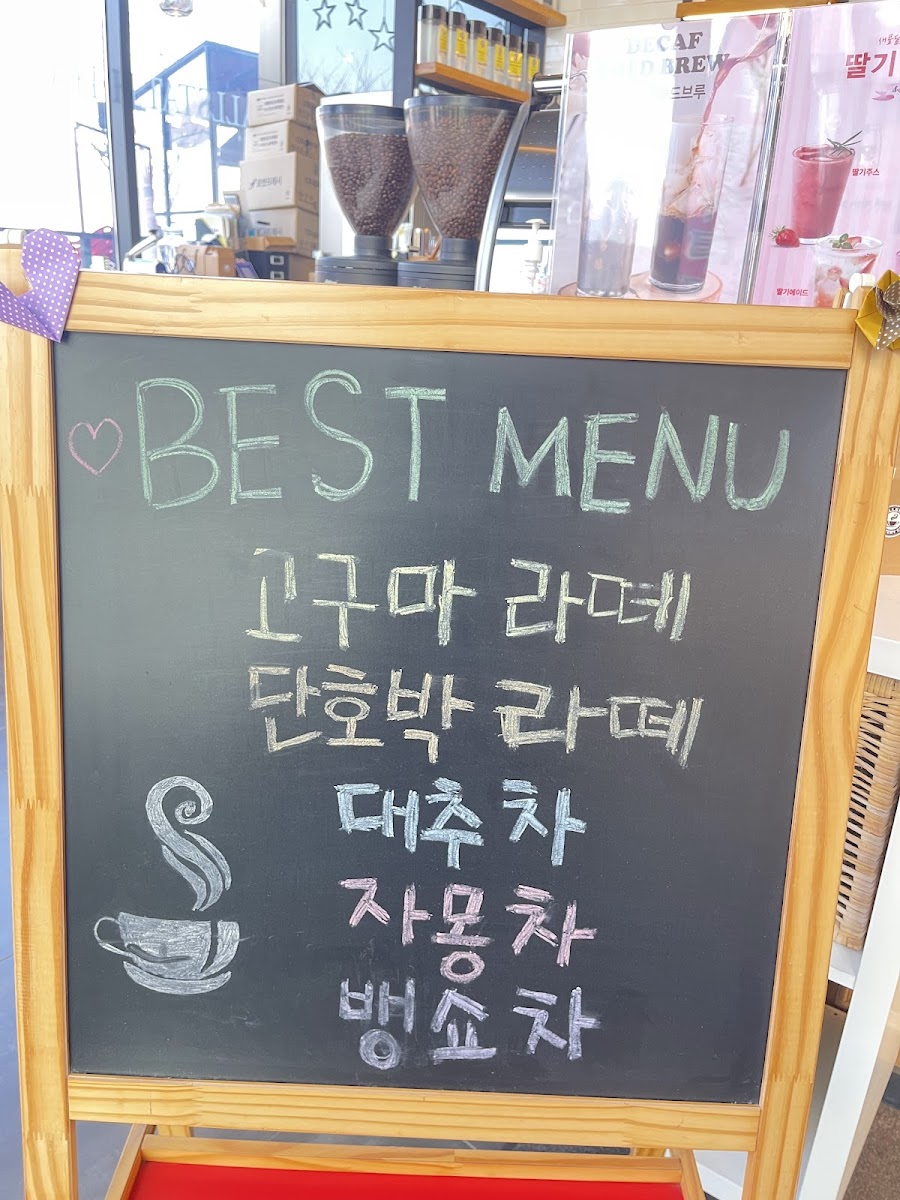 DECAF
콜드브루
딸기
딸기주스
딸기에이드
BEST MENU
고구마 라떼
단호박 라떼
대추 차
자몽 차
뱅쇼 차